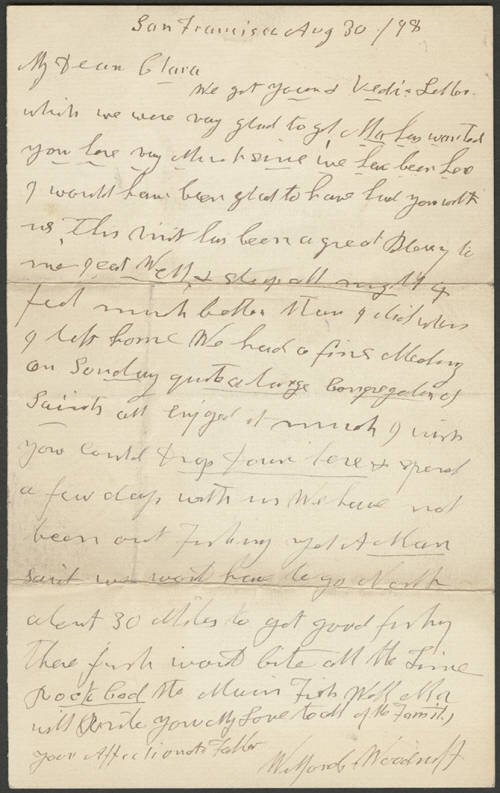 San Francisco Aug 30 /98
My Dear Clara
We got your & Vedi's Letter
which we were vary glad to get Ma has wanted
you here vary Much since we has been here
I would have been glad to have had you with
us, This visit has been a great Blessing to
me I eat Well, & sleep all night &
feel much better than I did when
I left home We had a fine Meeting
on Sunday quite a large Congregation of
Saints all enjoyed it much I wish
you could drop down here & spend
a few days with us We have not
been out Fishing yet A Man
said we would have to go North
about 30 Miles to get good fishing
There fish wont bite all the Time
Rock Cod the Main Fish Well Ma
will write you My Love to all of the Family
your Affectionate Father
Wilford Woodruff